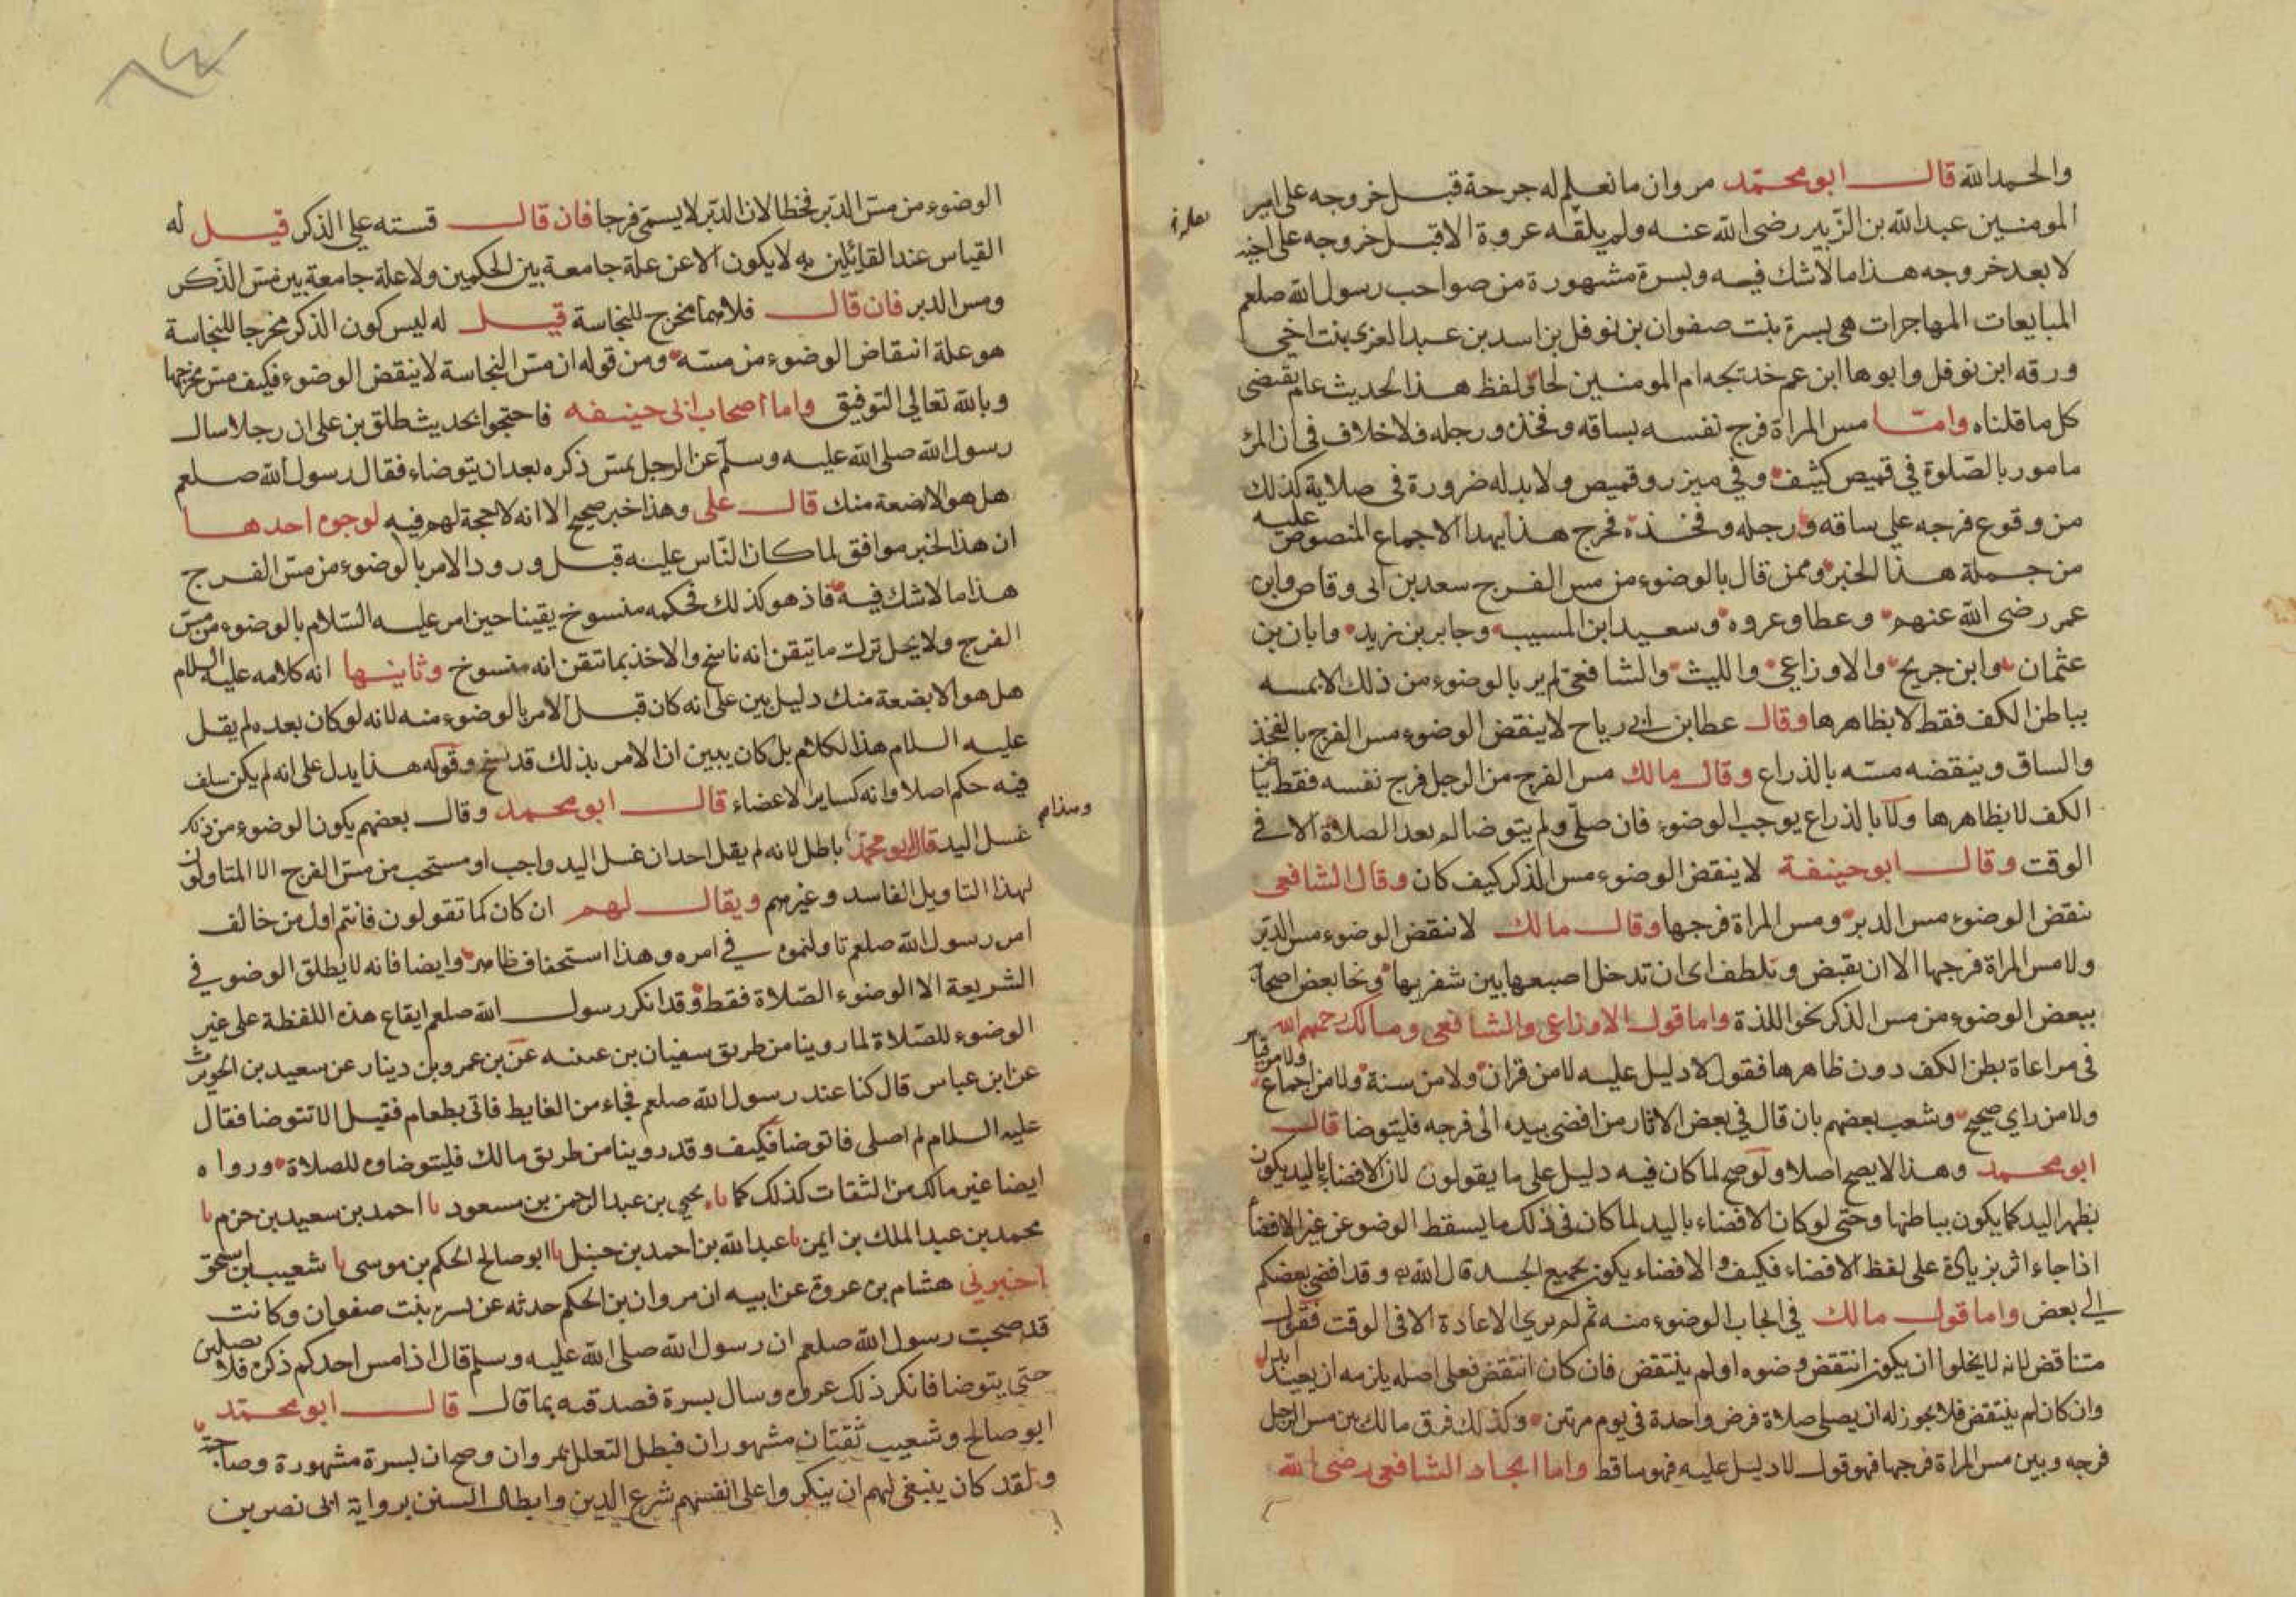 والحمد لله قال ابو محمد مروان ما نعلم له جرحة قبل خروجه على امير
المومنين عبد الله بن الزبير رضى الله عنه ولم يلقه عروة الا قبل خروجه على اخيه
لا بعد خروجه هذا ما لا شك فيه وبسرة مشهورة من صواحب رسول الله صلعم
المبايعات المهاجرات هى بسرة بنت صفوان بن نوفل بن اسد بن عبد العزى بنت اخى
ورقه ابن نوفل وابوها ابن عم خديجه ام المومنين لحا ولفظ هذا الحديث عام يقضى
كل ما قلناه واما مس المراة فرج نفسه بساقه وفخذه ورجله فلا خلاف فى ان المرء
مامور بالصلوة في قميص كثيف وفي ميزر وقميص ولا بد له ضرورة فى صلاته كذلك
من وقوع فرجه على ساقه ورجله وفخذه فخرج هذا بهذا الاجماع المنصوص عليه
من جملة هذا الخبر وممن قال بالوضوء من مس الفرج سعد بن ابى وقاص وابن
عمر رضى الله عنهم وعطا وعروه وسعيد ابن المسيب وجابر بن زيد وابان بن
عثمان وابن جريج والاوزاعي والليث والشافعى لم ير بالوضوء من ذلك الا بمسه
بباطن الكف فقط لا بظاهرها وقال عطا بن ابى رباح لا ينقض الوضوء مس الفرج بالفخذ
والساق وينقضه مسه بالذراع وقال مالك مس الفرج من الرجل فرج نفسه فقط بباطن
الكف لا بظاهرها ولا بالذراع يوجب الوضوء فان صلى ولم يتوضا لم يعد الصلاة الا في
الوقت وقال ابو حنيفة لا ينقض الوضوء مس الذكر كيف كان وقال الشافعى
ينقض الوضوء مس الدبر ومس المراة فرجها وقال مالك لا ينقض الوضوء مس الدبر
ولا مس المراة فرجها الا ان تقبض وتلطف اى ان تدخل اصبعها بين شفريها ونحا بعض اصحابه
ببعض الوضوء من مس الذكر نحو اللذة واما قول الاوزاعى والشافعى ومالك رحمهم الله
فى مراعاة بطن الكف دون ظاهرها فقول لا دليل عليه لا من قران ولا من سنة ولا من اجماع ولا من قياس
ولا من راي صحيح وشغب بعضهم بان قال في بعض الاثار من افضى بيده الى فرجه فليتوضا قال
ابو محمد وهذا لا يصح اصلا ولو صح لما كان فيه دليل على ما يقولون لان الافضاء باليد يكون
بظهر اليد كما يكون بباطنها وحتى لو كان الافضاء باليد لما كان فى ذلك ما يسقط الوضو عن غير الافضا
اذا جاء اثر بزيادة على لفظ الافضاء فكيف والافضاء يكون بجميع الجسد قال الله وقد افضى بعضكم
الى بعض واما قول مالك في ايجاب الوضوء منه ثم لم يرى الاعادة الا فى الوقت فقول
متناقض لانه لا يخلوا ان يكون انتقض وضوه او لم ينتقض فان كان انتقض فعلى اصله يلزمه ان يعيد ابدا
وان كان لم ينتقض فلا يجوز له ان يصلى صلاة فرض واحدة فى يوم مرتين وكذلك فرق مالك بين مس الرجل
فرجه وبين مس المراة فرجها فهو قول لا دليل عليه فهو ساقط واما ايجاب الشافعى رضى الله
الوضوء من مس الدبر فخطا لان الدبر لا يسمى فرجا فان قال قسته على الذكر قيل له
القياس عند القائلين به لا يكون الا عن علة جامعة بين الحكمين ولا علة جامعة بين مس الذكر
ومس الدبر فان قال فلانهما مخرج للنجاسة قيل له ليس كون الذكر مخرجا للنجاسة
هو علة انتقاض الوضوء من مسه ومن قوله ان مس النجاسة لا ينقض الوضوء فكيف مس مخرجها
وبالله تعالى التوفيق واما اصحاب ابى حنيفه فاحتجوا بحديث طلق بن على ان رجلا سال
رسول الله صلى الله عليه وسلم عن الرجل يمس ذكره بعد ان يتوضاء فقال رسول الله صلعم
هل هو الا بضعة منك قال على وهذا خبر صحيح الا انه لا حجة لهم فيه لوجوه احدها
ان هذا الخبر موافق لما كان الناس عليه قبل ورود الامر بالوضوء من مس الفرج
هذا ما لا شك فيه فاذ هو كذلك فحكمه منسوخ يقينا حين امر عليه السلام بالوضوء من مس
الفرج ولا يحل ترك ما تيقن انه ناسخ والاخذ بما تيقن انه منسوخ وثانيها انه كلامه عليه السلام
هل هو الا بضعة منك دليل بين على انه كان قبل الامر بالوضوء منه لانه لو كان بعده لم يقل
عليه السلام هذا الكلام بل كان يبين ان الامر بذلك قد نسخ وقوله هذا يدل على انه لم يكن سلف
فيه حكم اصلا وانه كساير الاعضاء قال ابو محمد وقال بعضهم يكون الوضوء من ذلك
غسل اليد قال ابو محمد باطل لانه لم يقل احد ان غسل اليد واجب او مستحب من مس الفرج الا المتاولون
لهذا التاويل الفاسد وغيرهم ويقال لهم ان كان كما تقولون فانتم اول من خالف
امر رسول الله صلعم تاولتموه في امره وهذا استخفاف ظاهر وايضا فانه لا يطلق الوضو في
الشريعة الا الوضوء الصلاة فقط وقد انكر رسول الله صلعم ايقاع هذه اللفظة على غير
الوضوء للصلاة لما روينا من طريق سفيان بن عيينه عن بن عمرو بن دينار عن سعيد بن الحويرث
عن ابن عباس قال كنا عند رسول الله صلعم فجاء من الغايط فاتى بطعام فقيل الا تتوضا فقال
عليه السلام لم اصلى فاتوضا فكيف وقد روينا من طريق مالك فليتوضا وه للصلاة ورواه
ايضا غير مالك من الثقات كذلك كما نا يحيي بن عبد الرحمن بن مسعود نا احمد بن سعيد بن حزم نا
محمد بن عبد الملك بن ايمن نا عبد الله بن احمد بن حنبل نا ابو صالح الحكم بن موسى نا شعيب ابن اسحق
اخبرني هشام بن عروة عن ابيه ان مروان بن الحكم حدثه عن بسرة بنت صفوان وكانت
قد صحبت رسول الله صلعم ان رسول الله صلى الله عليه وسلم قال اذا مس احدكم ذكره فلا يصلين
حتى يتوضا فانكر ذلك عروه وسال بسرة فصدقته بما قال قال ابو محمد
ابو صالح وشعيب ثقتان مشهوران فبطل التعلل بمروان وصح ان بسرة مشهورة وصاحبة
ولقد كان ينبغى لهم ان ينكروا على انفسهم شرع الدين وابطال السنن برواية ابى نصر بن